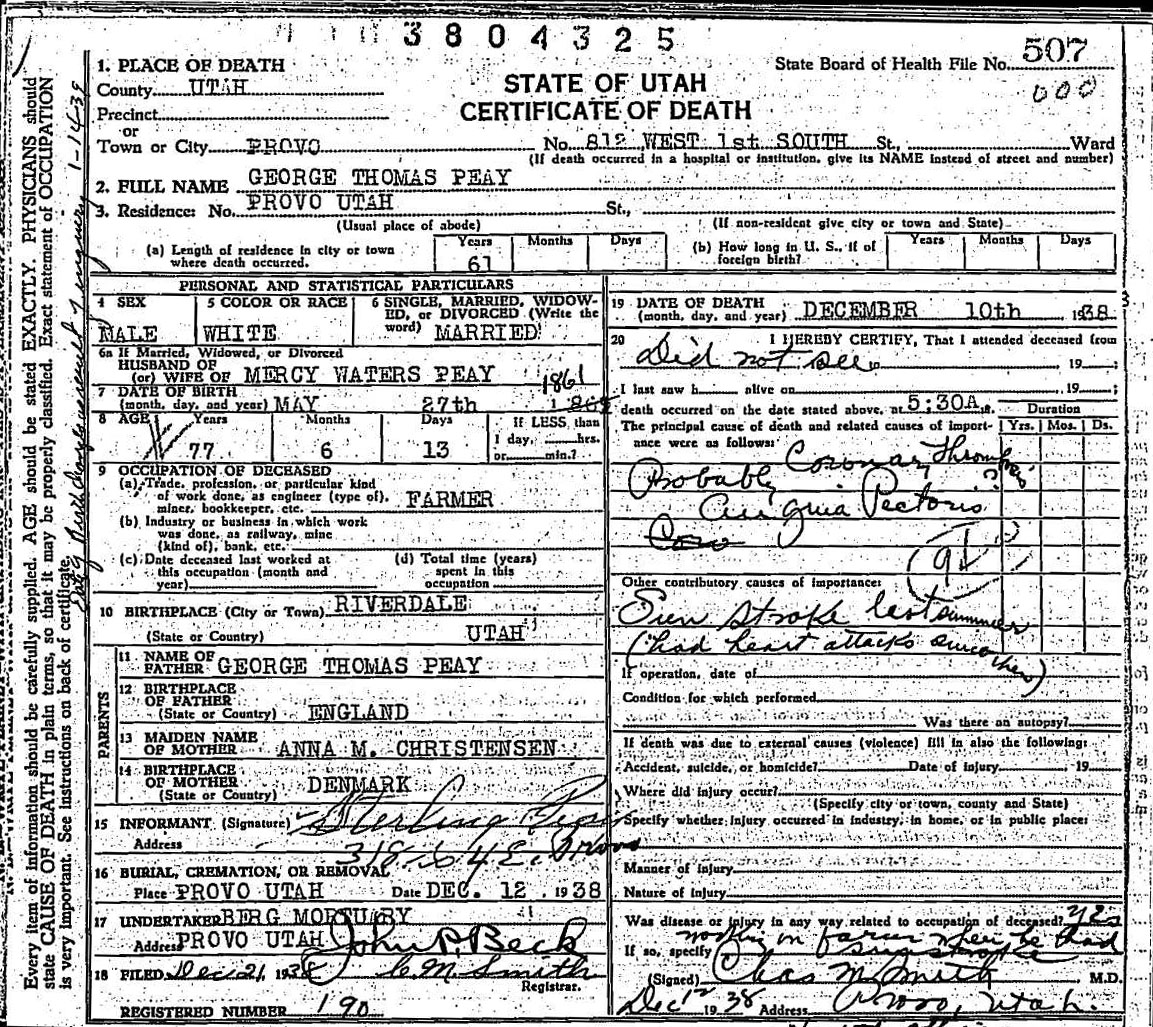 3804325
State Board of Health File No. 507
000
STATE OF UTAH
CERTIFICATE OF DEATH
1. PLACE OF DEATH
County UTAH
Precinct
or
Town or City PROVO No. 812 WEST 1st SOUTH St., Ward
(If death occurred in a hospital or institution, give its NAME instead of street and number)
2. FULL NAME GEORGE THOMAS PEAY
3. Residence: No. PROVO UTAH St.,
(Usual place of abode) (If non-resident give city or town and State)
(a) Length of residence in city or town where death occurred. Years 61 Months Days
(b) How long in U. S., if of foreign birth? Years Months Days
PERSONAL AND STATISTICAL PARTICULARS
4 SEX MALE
5 COLOR OR RACE WHITE
6 SINGLE, MARRIED, WIDOWED, or DIVORCED (Write the word) MARRIED
6a If Married, Widowed, or Divorced
HUSBAND OF
(or) WIFE OF MERCY WATERS PEAY
7 DATE OF BIRTH 1861
(month, day, and year) MAY 27th
8 AGE Years 77 Months 6 Days 13 If LESS than
1 day, hrs.
or min.?
9 OCCUPATION OF DECEASED
(a) Trade, profession, or particular kind
of work done, as engineer (type of),
miner, bookkeeper, etc. FARMER
(b) Industry or business in which work
was done, as railway, mine
(kind of), bank, etc.
(c) Date deceased last worked at
this occupation (month and
year)
(d) Total time (years)
spent in this
occupation
10 BIRTHPLACE (City or Town) RIVERDALE
(State or Country) UTAH
PARENTS
11 NAME OF
FATHER GEORGE THOMAS PEAY
12 BIRTHPLACE
OF FATHER
(State or Country) ENGLAND
13 MAIDEN NAME
OF MOTHER ANNA M. CHRISTENSEN
14 BIRTHPLACE
OF MOTHER
(State or Country) DENMARK
15 INFORMANT (Signature) Sterling Peay
Address 318 So 4 E. Provo
16 BURIAL, CREMATION, OR REMOVAL
Place PROVO UTAH Date DEC. 12, 1938
17 UNDERTAKER BERG MORTUARY
Address PROVO UTAH John P. Beck
18 FILED Dec 21, 1938 C. M. Smith
Registrar.
REGISTERED NUMBER 190
19 DATE OF DEATH
(month, day, and year) DECEMBER 10th 1938
20 I HEREBY CERTIFY, That I attended deceased from
Did not see 19
I last saw h alive on 19 ;
death occurred on the date stated above, at 5:30A.
The principal cause of death and related causes of importance were as follows: Duration Yrs. Mos. Ds.
Coronary Thrombosis
Probably ?
Anginia Pectoris
Coro
94
Other contributory causes of importance:
Sun stroke last summer
(had heart attacks since then)
If operation, date of
Condition for which performed
Was there an autopsy?
If death was due to external causes (violence) fill in also the following:
Accident, suicide, or homicide? Date of injury 19
Where did injury occur?
(Specify city or town, county and State)
Specify whether injury occurred in industry, in home, or in public place:
Manner of injury
Nature of injury
Was disease or injury in any way related to occupation of deceased? yes
If so, specify working on farm when he had
sunstroke
(Signed) Chas M. Smith M.D.
Dec 12 1938 Address Provo, Utah.
Every item of information should be carefully supplied. AGE should be stated EXACTLY. PHYSICIANS should
state CAUSE OF DEATH in plain terms, so that it may be properly classified. Exact statement of OCCUPATION
is very important. See instructions on back of certificate.
1-14-39